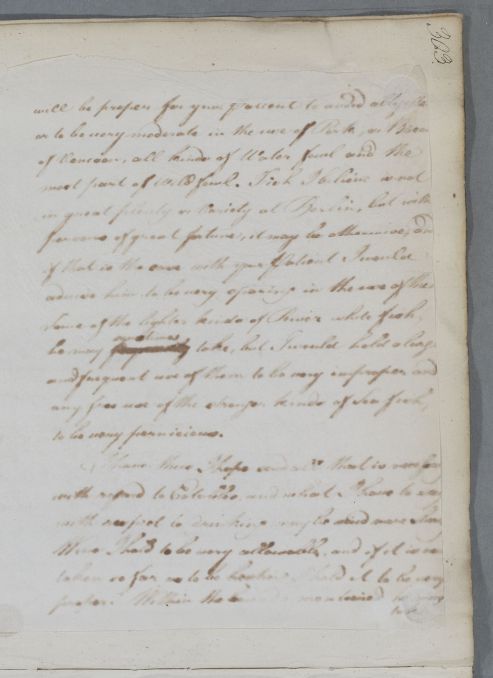 303
will be proper for your Patient to avoid altogether
or to be very moderate in the use of Pork, or Bacon
of Venison, all kinds of Water fowl and the
most part of wild fowl. Fish I believe is not
in great plenty or variety at Berlin, but with
persons of great fortune, it may be otherwise, and
if that is the case with your Patient I would
advise him to be very sparing in the use of the
Some of the lighter kinds of River white fish,
he may sometimes take, but I would hold a large
and frequent use of them to be very improper and
any free use of the stronger kinds of Sea fish,
to be very pernicious.
I have thus I hope said all that is necessary
with regard to Eatables, and what I have to say
with respect to drinking may be said more
Wine I hold to be very allowable, and if it is
taken so far as to be I hold it to be very
proper. Within the mentioned